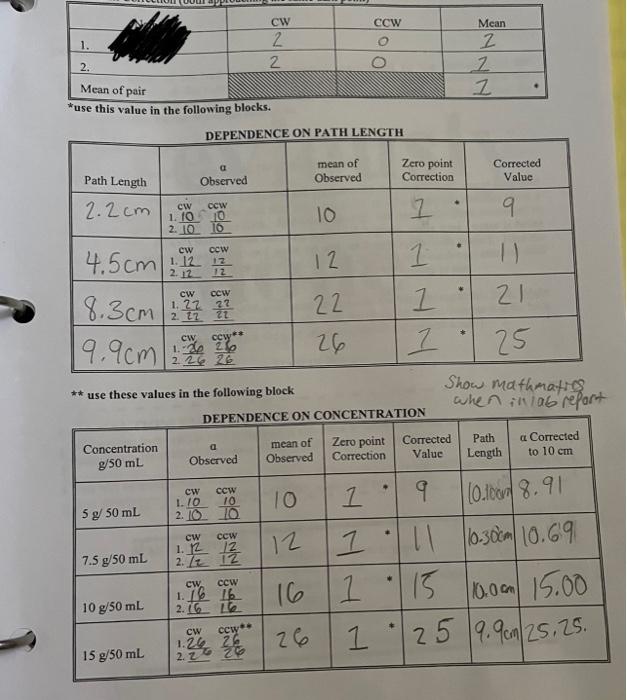 CW CCW Mean
1. 2 0 1
2. 2 0 1
Mean of pair 1 *
*use this value in the following blocks.
DEPENDENCE ON PATH LENGTH
Path Length α Observed mean of Observed Zero point Correction Corrected Value
2.2cm CW CCW 1. 10 10 2. 10 10 10 1 * 9
4.5cm CW CCW 1. 12 12 2. 12 12 12 1 * 11
8.3cm CW CCW 1. 22 22 2. 22 22 22 1 * 21
9.9cm CW CCW** 1. 26 26 2. 26 26 26 1 * 25
Show mathmatics
** use these values in the following block when in lab report
DEPENDENCE ON CONCENTRATION
Concentration g/50 mL α Observed mean of Observed Zero point Correction Corrected Value Path Length α Corrected to 10 cm
5 g/ 50 mL CW CCW 1. 10 10 2. 10 10 10 1 * 9 10.10cm 8.91
7.5 g/50 mL CW CCW 1. 12 12 2. 12 12 12 1 * 11 10.30cm 10.69
10 g/50 mL CW CCW 1. 16 16 2. 16 16 16 1 * 15 10.0cm 15.00
15 g/50 mL CW CCW** 1. 26 26 2. 26 26 26 1 * 25 9.9cm 25.25.